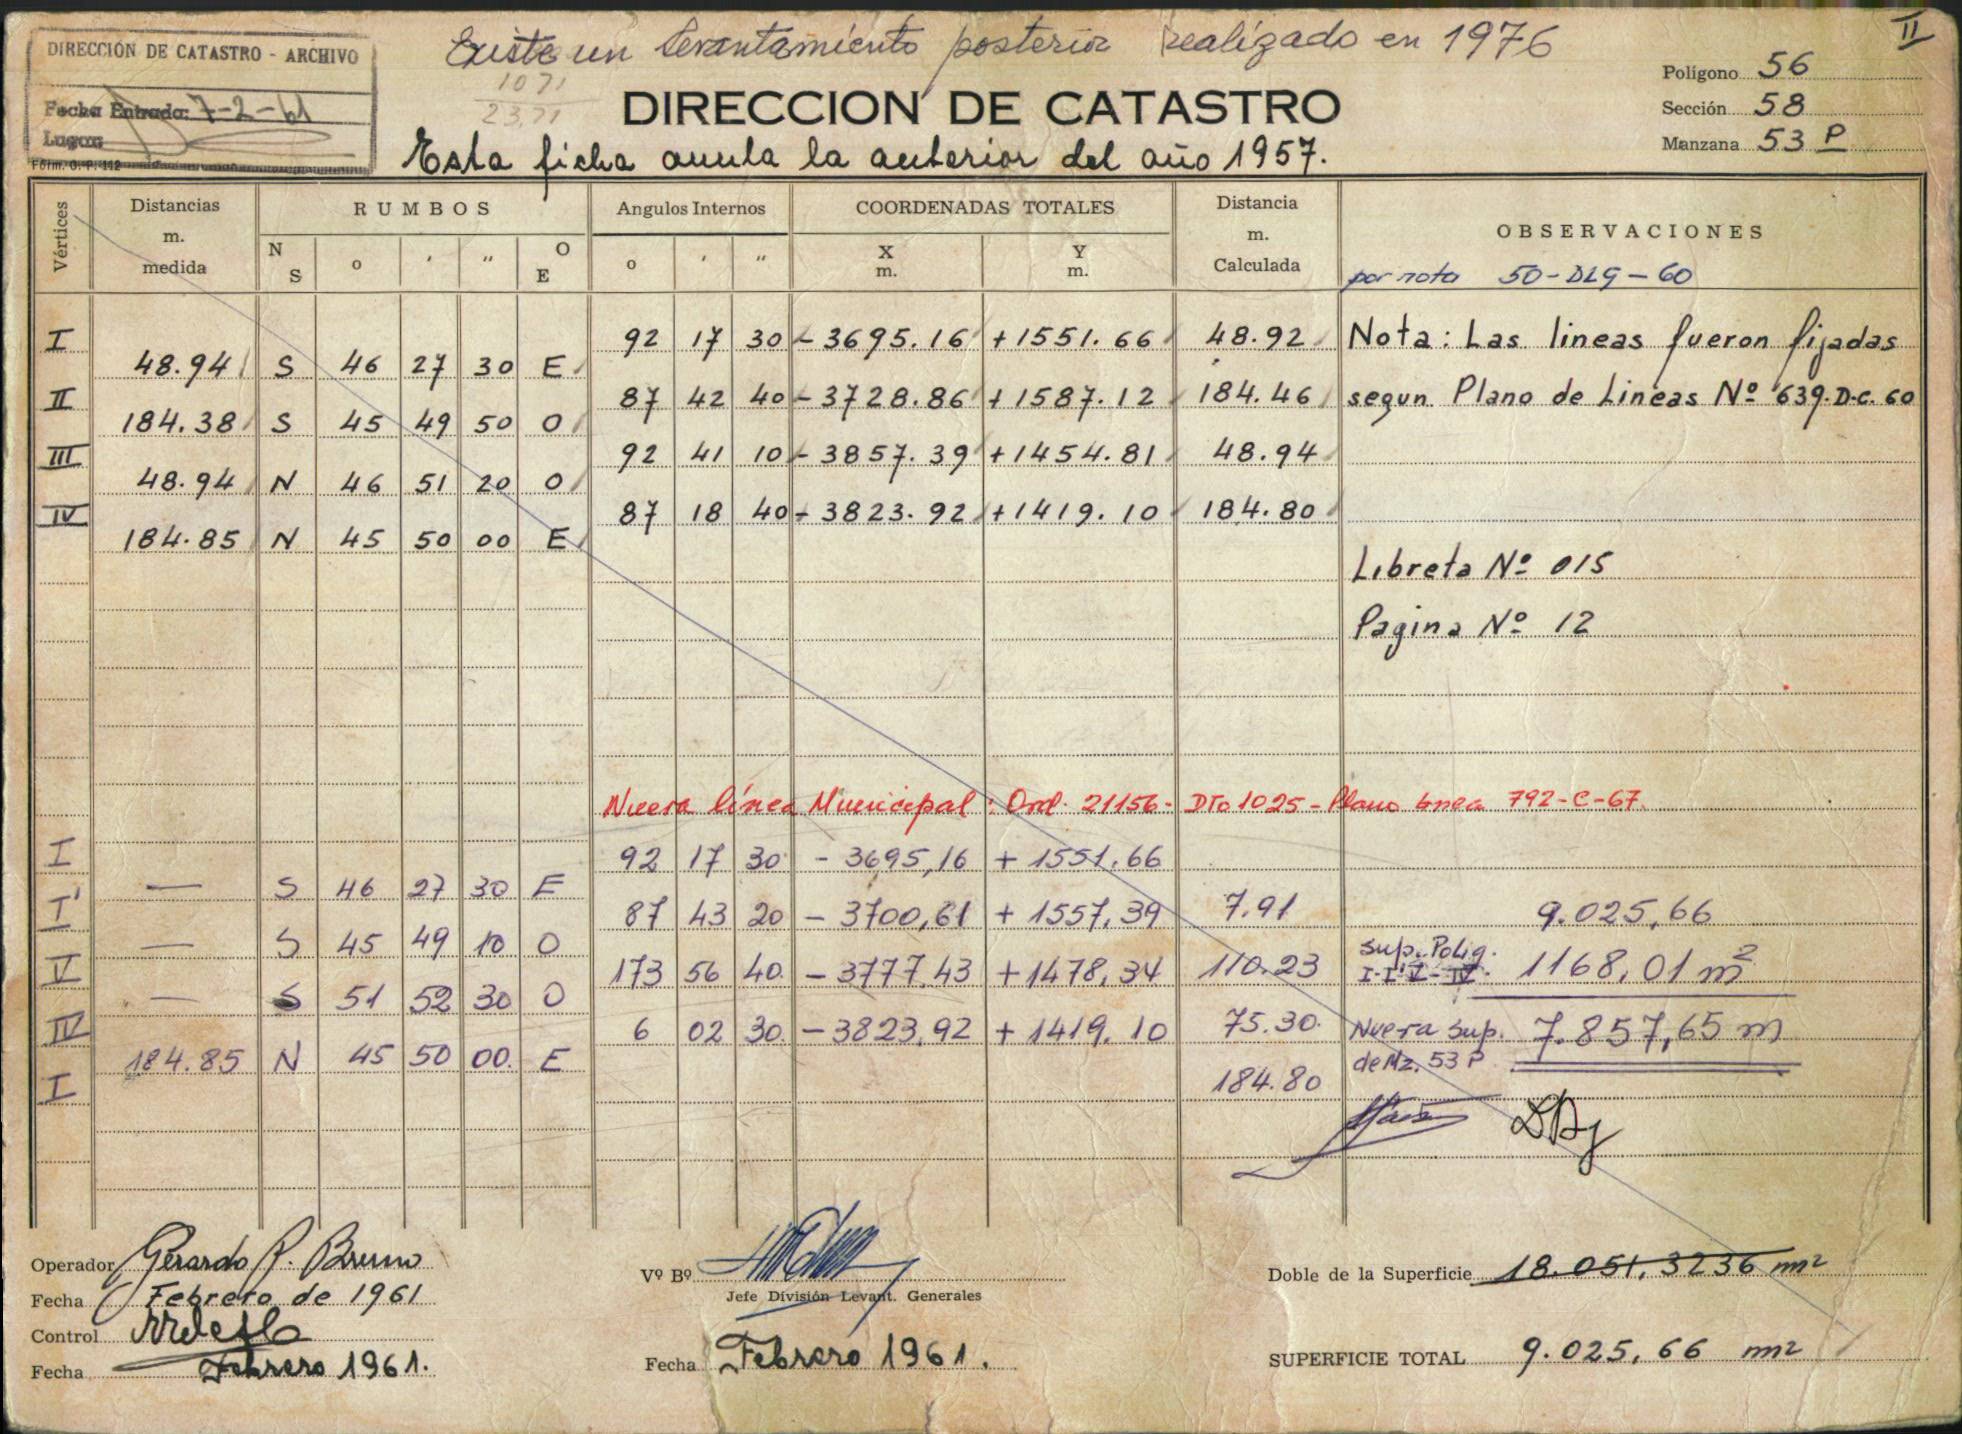 II
DIRECCIÓN DE CATASTRO - ARCHIVO
Fecha Entrada: 7-2-61
Lugar
Form. O. P. 112
Existe un levantamiento posterior realizado en 1976
1071
23,71
DIRECCION DE CATASTRO
Esta ficha anula la anterior del año 1957.
Polígono 56
Sección 58
Manzana 53 P
Vértices Distancias m. medida RUMBOS Angulos Internos COORDENADAS TOTALES Distancia m. Calculada OBSERVACIONES
N S o ' " O E o ' " X m. Y m.
por nota 50-DLG-60
I 92 17 30 - 3695.16 + 1551.66 48.92 Nota: Las lineas fueron fijadas
48.94 S 46 27 30 E
II 87 42 40 - 3728.86 + 1587.12 184.46 segun Plano de Lineas Nº 639.D.C.60
184.38 S 45 49 50 O
III 92 41 10 - 3857.39 + 1454.81 48.94
48.94 N 46 51 20 O
IV 87 18 40 - 3823.92 + 1419.10 184.80
184.85 N 45 50 00 E
Libreta Nº 015
Pagina Nº 12
Nueva línea Municipal: Ord. 21156- Dto 1025 - Plano linea 792-C-67.
I 92 17 30 - 3695,16 + 1551.66
— S 46 27 30 E
I' 87 43 20 - 3700,61 + 1557,39 7.91 9.025,66
— S 45 49 10 O
V 173 56 40 - 3777.43 + 1478,34 110.23 Sup. Polig. I-I'-V-IV. 1168,01 m2
— S 51 52 30 O
IV 6 02 30 - 3823,92 + 1419.10 75.30 Nueva Sup. de Mz. 53 P 7.857,65 m
184.85 N 45 50 00. E
I 184.80
Operador Gerardo R. Bruno
Fecha Febrero de 1961
Control
Fecha Febrero 1961.
Vº Bº
Jefe División Levant. Generales
Fecha Febrero 1961.
Doble de la Superficie 18.051,3236 m2
SUPERFICIE TOTAL 9.025,66 m2